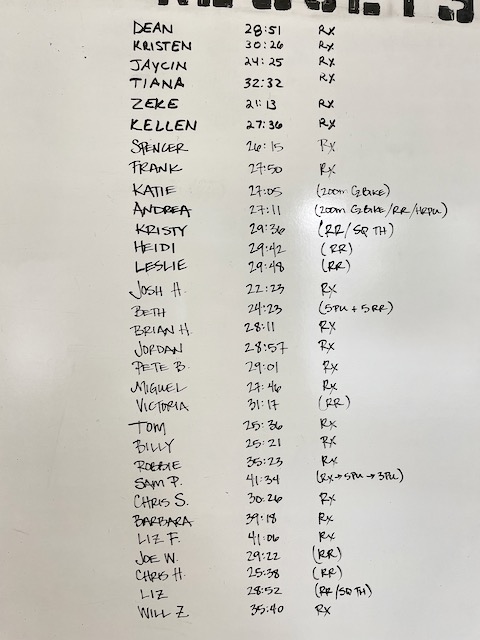 RESULTS
DEAN 28:51 Rx
KRISTEN 30:26 Rx
JAYCIN 24:25 Rx
TIANA 32:32 Rx
ZEKE 21:13 Rx
KELLEN 27:36 Rx
SPENCER 26:15 Rx
FRANK 27:50 Rx
KATIE 27:05 (200m C2BIKE)
ANDREA 27:11 (200m C2BIKE/RR/HRPU)
KRISTY 29:36 (RR/SQ TH)
HEIDI 29:42 (RR)
LESLIE 29:48 (RR)
JOSH H. 22:23 Rx
BETH 24:23 (5PU + 5RR)
BRIAN H. 28:11 Rx
JORDAN 28:57 Rx
PETE B. 29:01 Rx
MIGUEL 27:46 Rx
VICTORIA 31:17 (RR)
TOM 25:36 Rx
BILLY 25:21 Rx
ROBBIE 35:23 Rx
SAM P. 41:34 (Rx→5PU→3PU)
CHRIS S. 30:26 Rx
BARBARA 39:18 Rx
LIZ F. 41:06 Rx
JOE W. 29:22 (RR)
CHRIS H. 25:38 (RR)
LIZ 28:52 (RR/SQ TH)
WILL Z 35:40 Rx